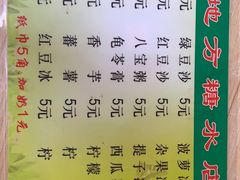 地方糖水店
元 绿豆沙 5元 菠萝冰
元 红豆沙 5元 杂果
元 八宝粥 5元 提子
元 龟苓膏 5元 西瓜
元 香芋 5元 柠檬
元 蕃薯 5元 柠
元 红豆冰 5元 柠
纸巾5角,加奶1元